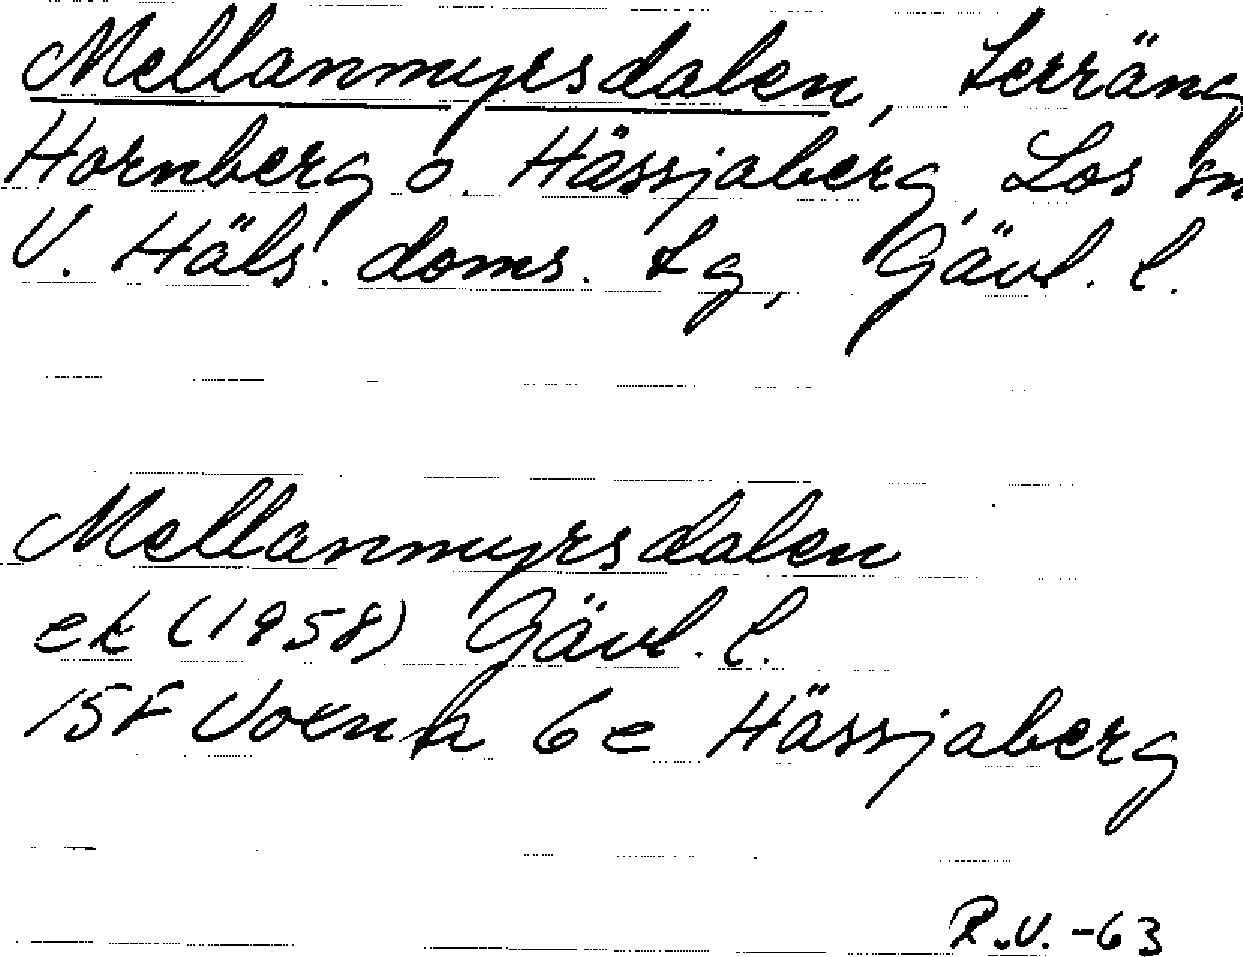 Mellanmyrsdalen, Terräng
Hornberg o. Hässjaberg, Los sn
V. Häls. doms. tg, Gävl. l.
Mellanmyrsdalen
ek (1958) Gävl. l.
15F Voxna 6e Hässjaberg
R.V. -63